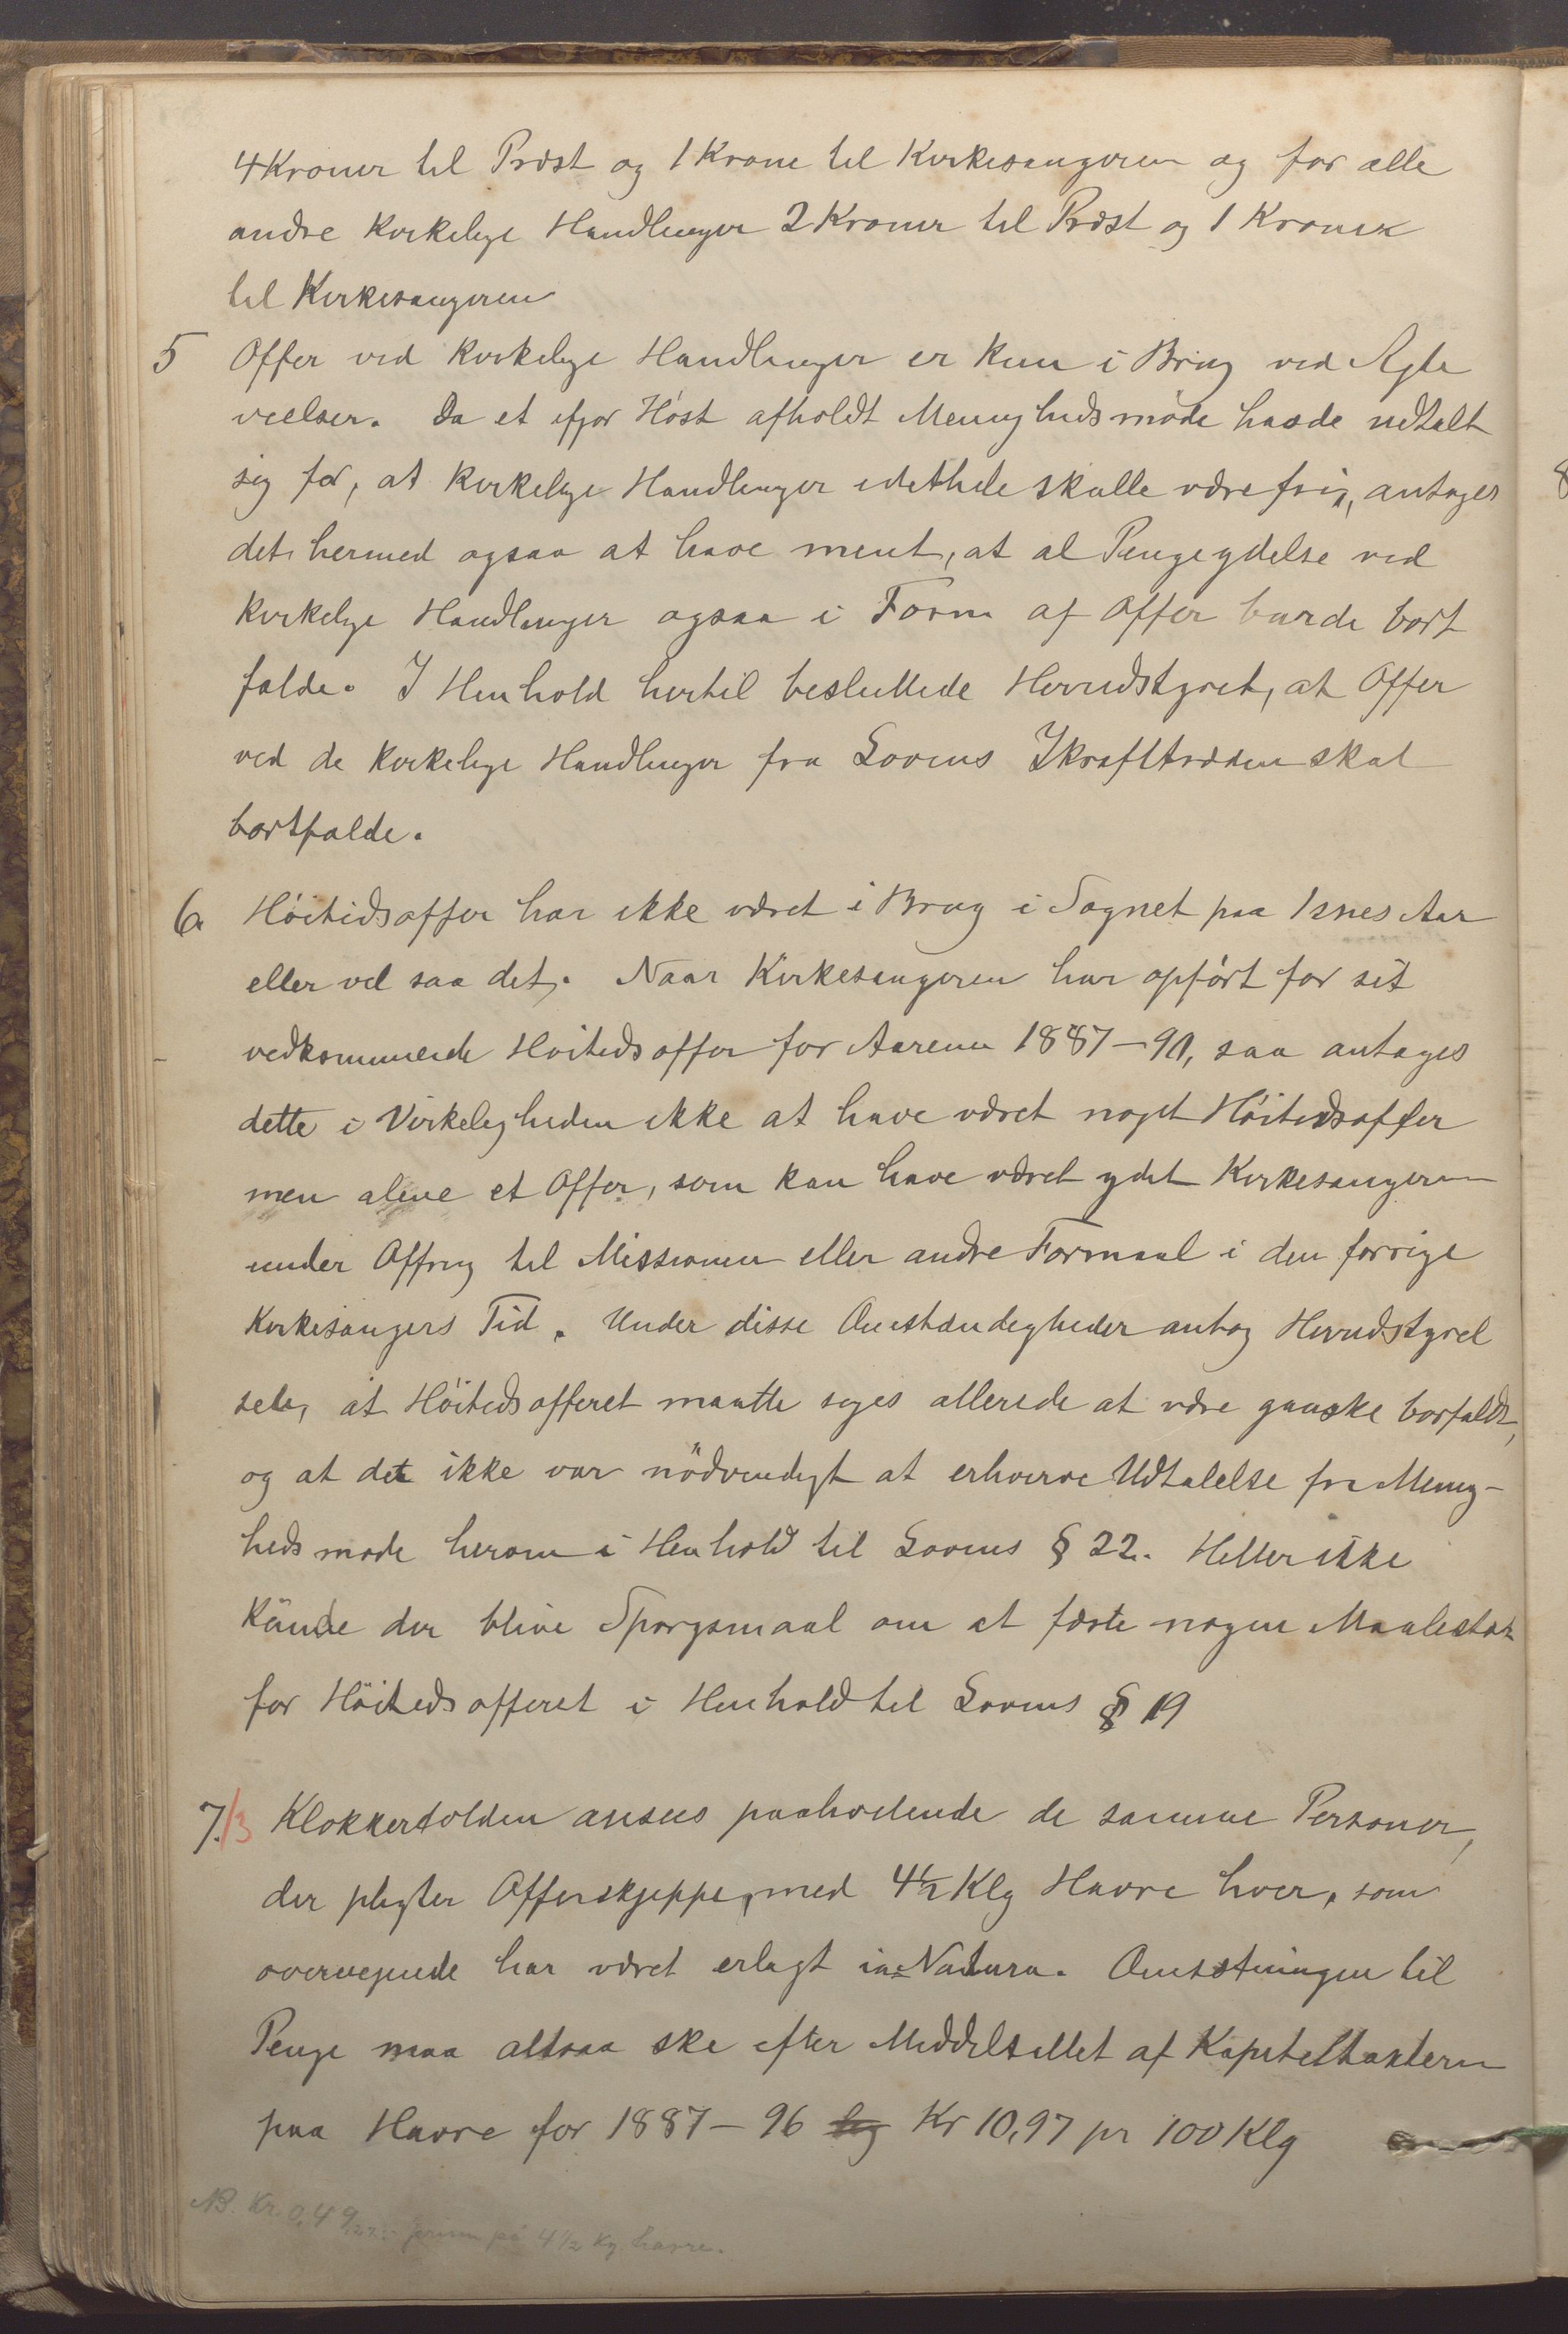 4 Kroner til Præst og 1 Krone til Kirkesangeren og for alle
andre kirkelige Handlinger 2 Kroner til Præst og 1 Krone
til Kirkesangeren
5 Offer ved kirkelige Handlinger er kun i Brug ved Ægte
vielser. Da et ifjor Høst afholdt Menighedsmøde havde udtalt
sig for, at kirkelige Handlinger idethele skulle være fri, antages
det hermed ogsaa at have ment, at al Pengeydelse ved
kirkelige Handlinger ogsaa i Form af Offer burde bort
falde. I Henhold hertil besluttede Herredstyret, at Offer
ved de kirkelige Handlinger fra Lovens Ikrafttræden skal
bortfalde.
6 Höitidsoffer har ikke været i Brug i Sognet paa Aar
eller vel saa det. Naar Kirkesangeren har opført for sit
vedkommende Höitidsoffer for Aarene 1887-90, saa antages
dette i Virkeligheden ikke at have været noget Höitidsoffer
men alene et Offer, som kan have været ydet Kirkesangeren
under Offring til Missionen eller andre Formaal i den forrige
Kirkesangers Tid. Under disse Omstændigheder antog Herredstyrel
sele, at Höitidsofferet maatte siges allerede at være ganske borfaldt,
og at det ikke var nödvendigt at erhverve Udtalelse fra Menig-
hedsmøde herom i Henhold til Lovens § 22. Heller ikke
kunde der blive Spørgsmaal om at fæste nogen Maalestok
for Höitidsofferet i Henhold til Lovens § 19
7./3 Klokkertolden ansees paahvilende de samme Personer,
der pligter Offerskjeppe, med 4½ Klg Havre hver, som
overveiende har været erlagt in Natura. Omsætningen til
Penge maa altsaa ske efter Middeltallet af Kapiteltaxtern
paa Havre for 1887-96 Kr 10,97 pr 100 Klg
NB. Kr. 0,49 på 4½ kg havre.